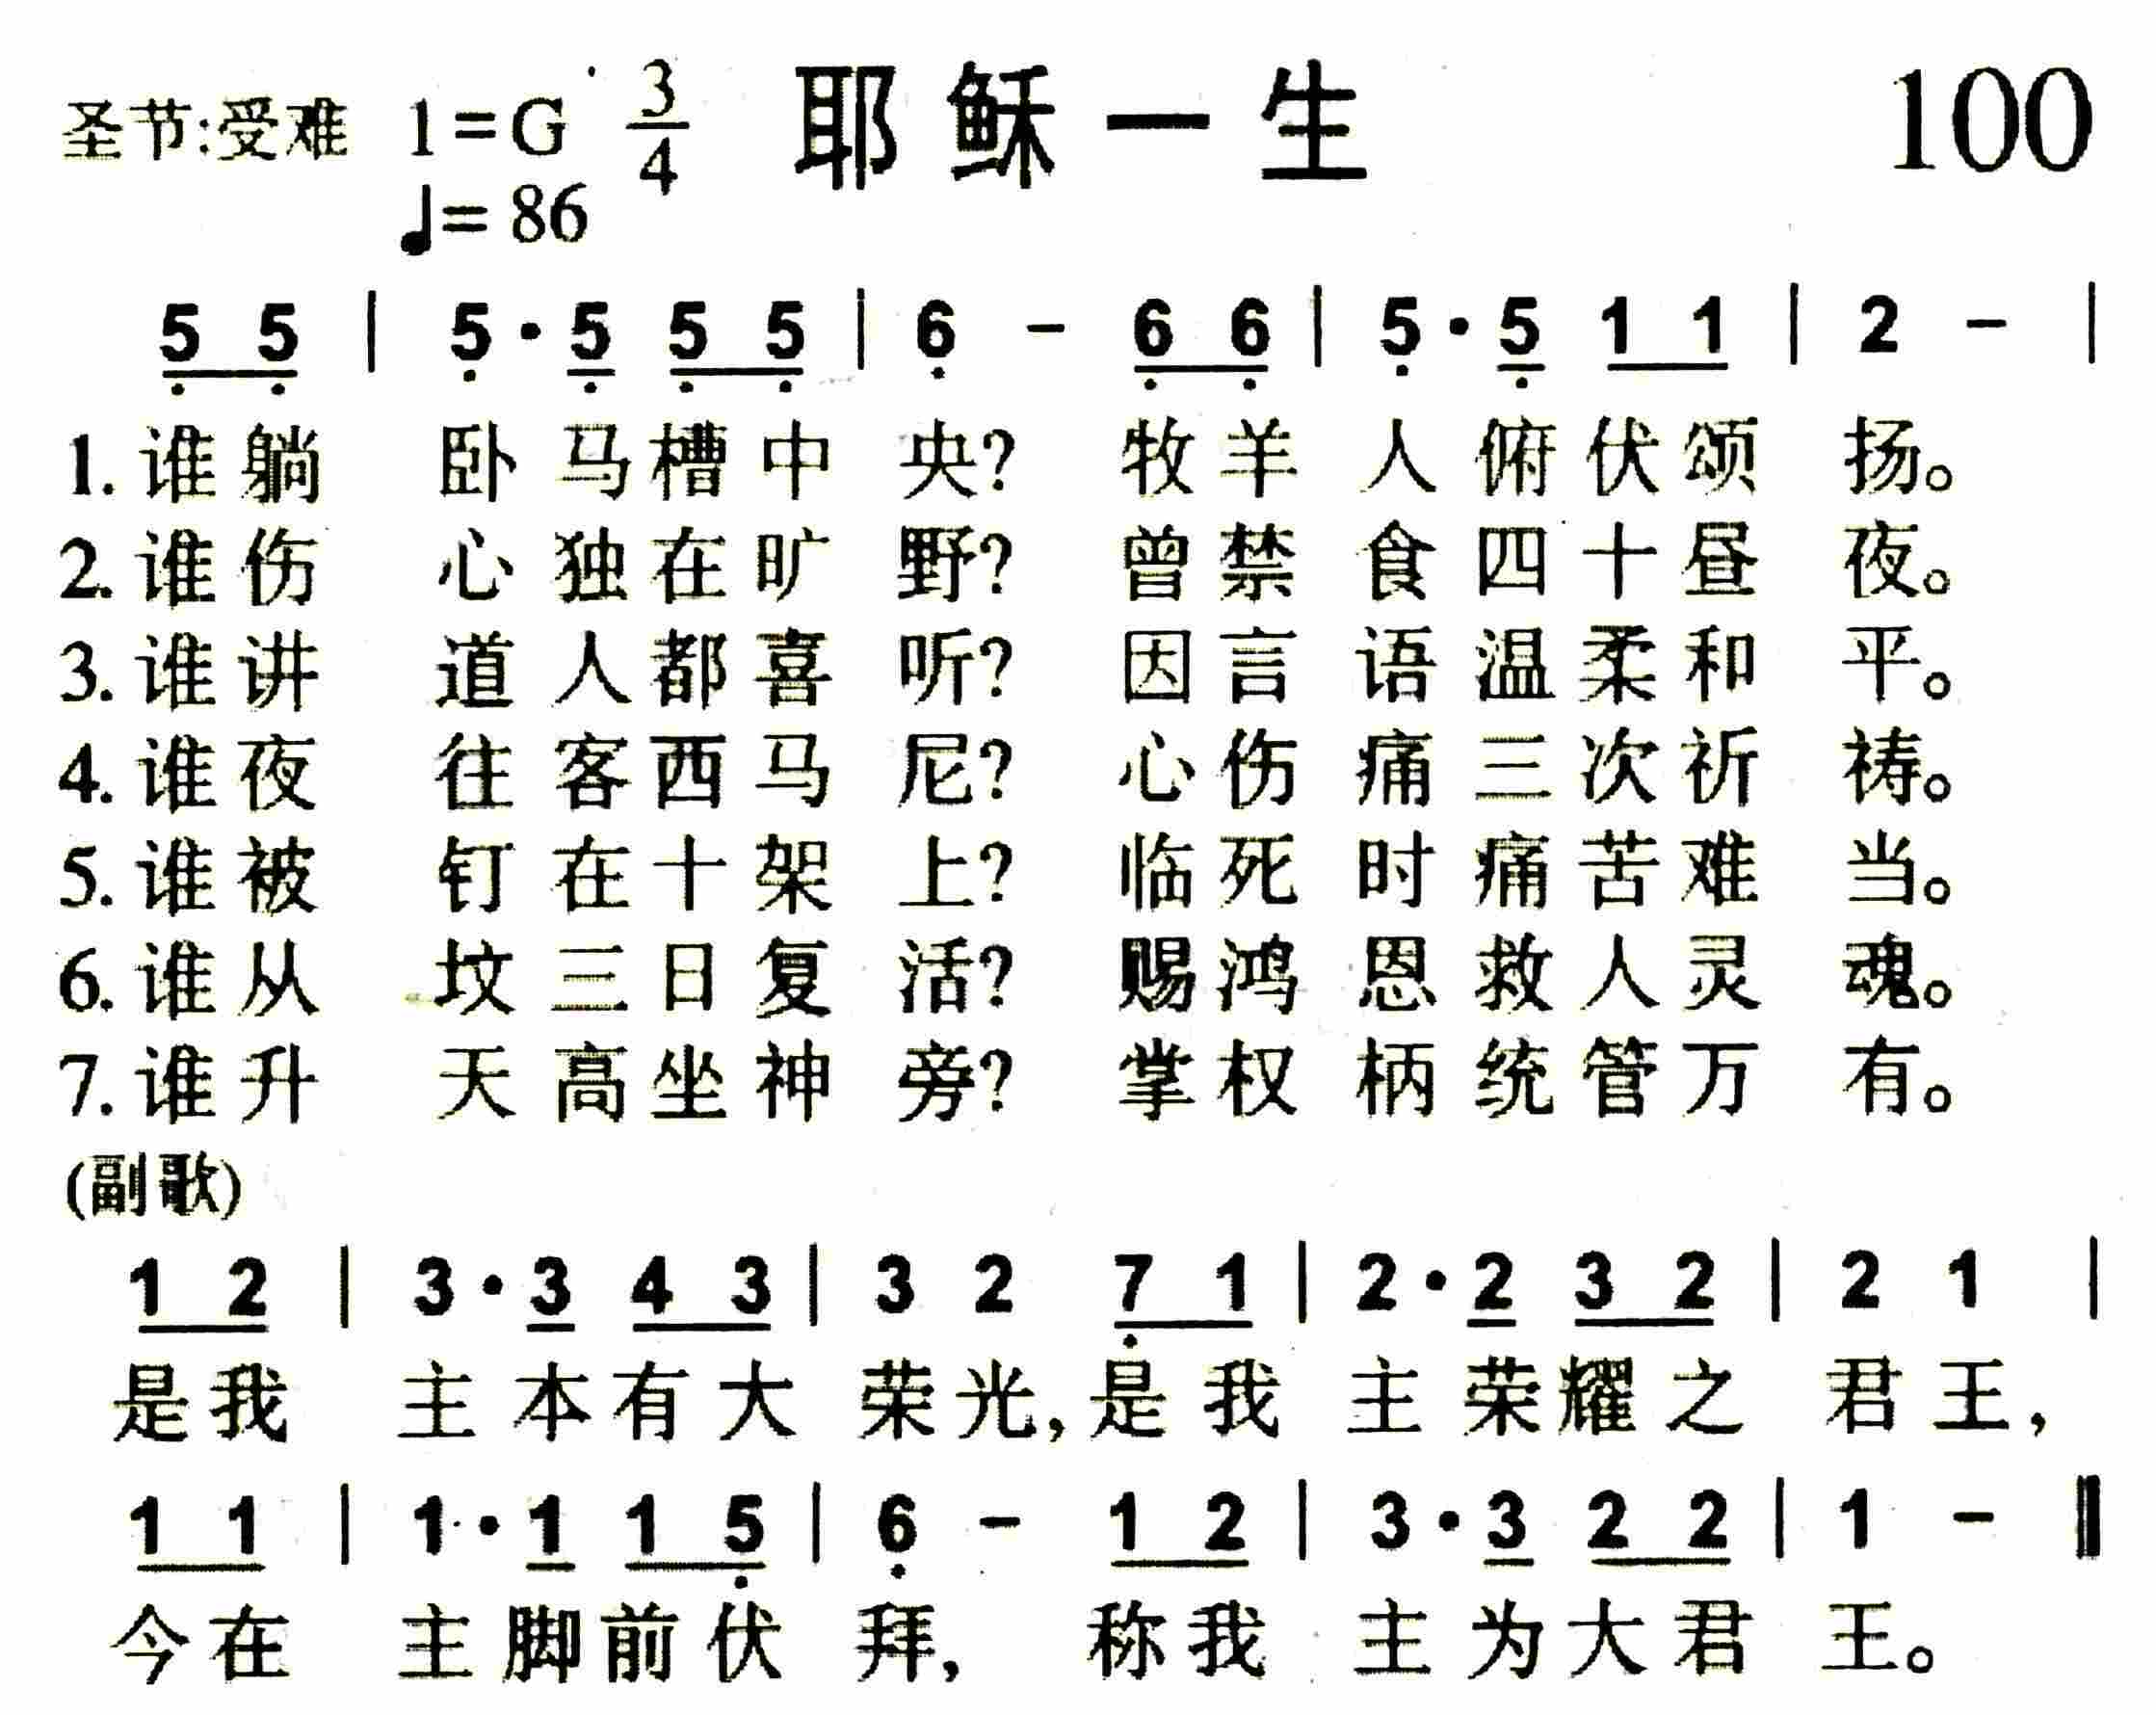 圣节:受难 1=G 3/4 耶稣一生 100
♩= 86
5 5 | 5 · 5 5 5 | 6 - 6 6 | 5 · 5 1 1 | 2 - |
1. 谁躺 卧马槽中 央? 牧羊 人俯伏颂 扬。
2. 谁伤 心独在旷 野? 曾禁 食四十昼 夜。
3. 谁讲 道人都喜 听? 因言 语温柔和 平。
4. 谁夜 往客西马 尼? 心伤 痛三次祈 祷。
5. 谁被 钉在十架 上? 临死 时痛苦难 当。
6. 谁从 坟三日复 活? 赐鸿 恩救人灵 魂。
7. 谁升 天高坐神 旁? 掌权 柄统管万 有。
(副歌)
1 2 | 3 · 3 4 3 | 3 2 7 1 | 2 · 2 3 2 | 2 1 |
是我 主本有大 荣光,是我 主荣耀之 君王,
1 1 | 1 · 1 1 5 | 6 - 1 2 | 3 · 3 2 2 | 1 - ‖
今在 主脚前伏 拜, 称我 主为大君 王。